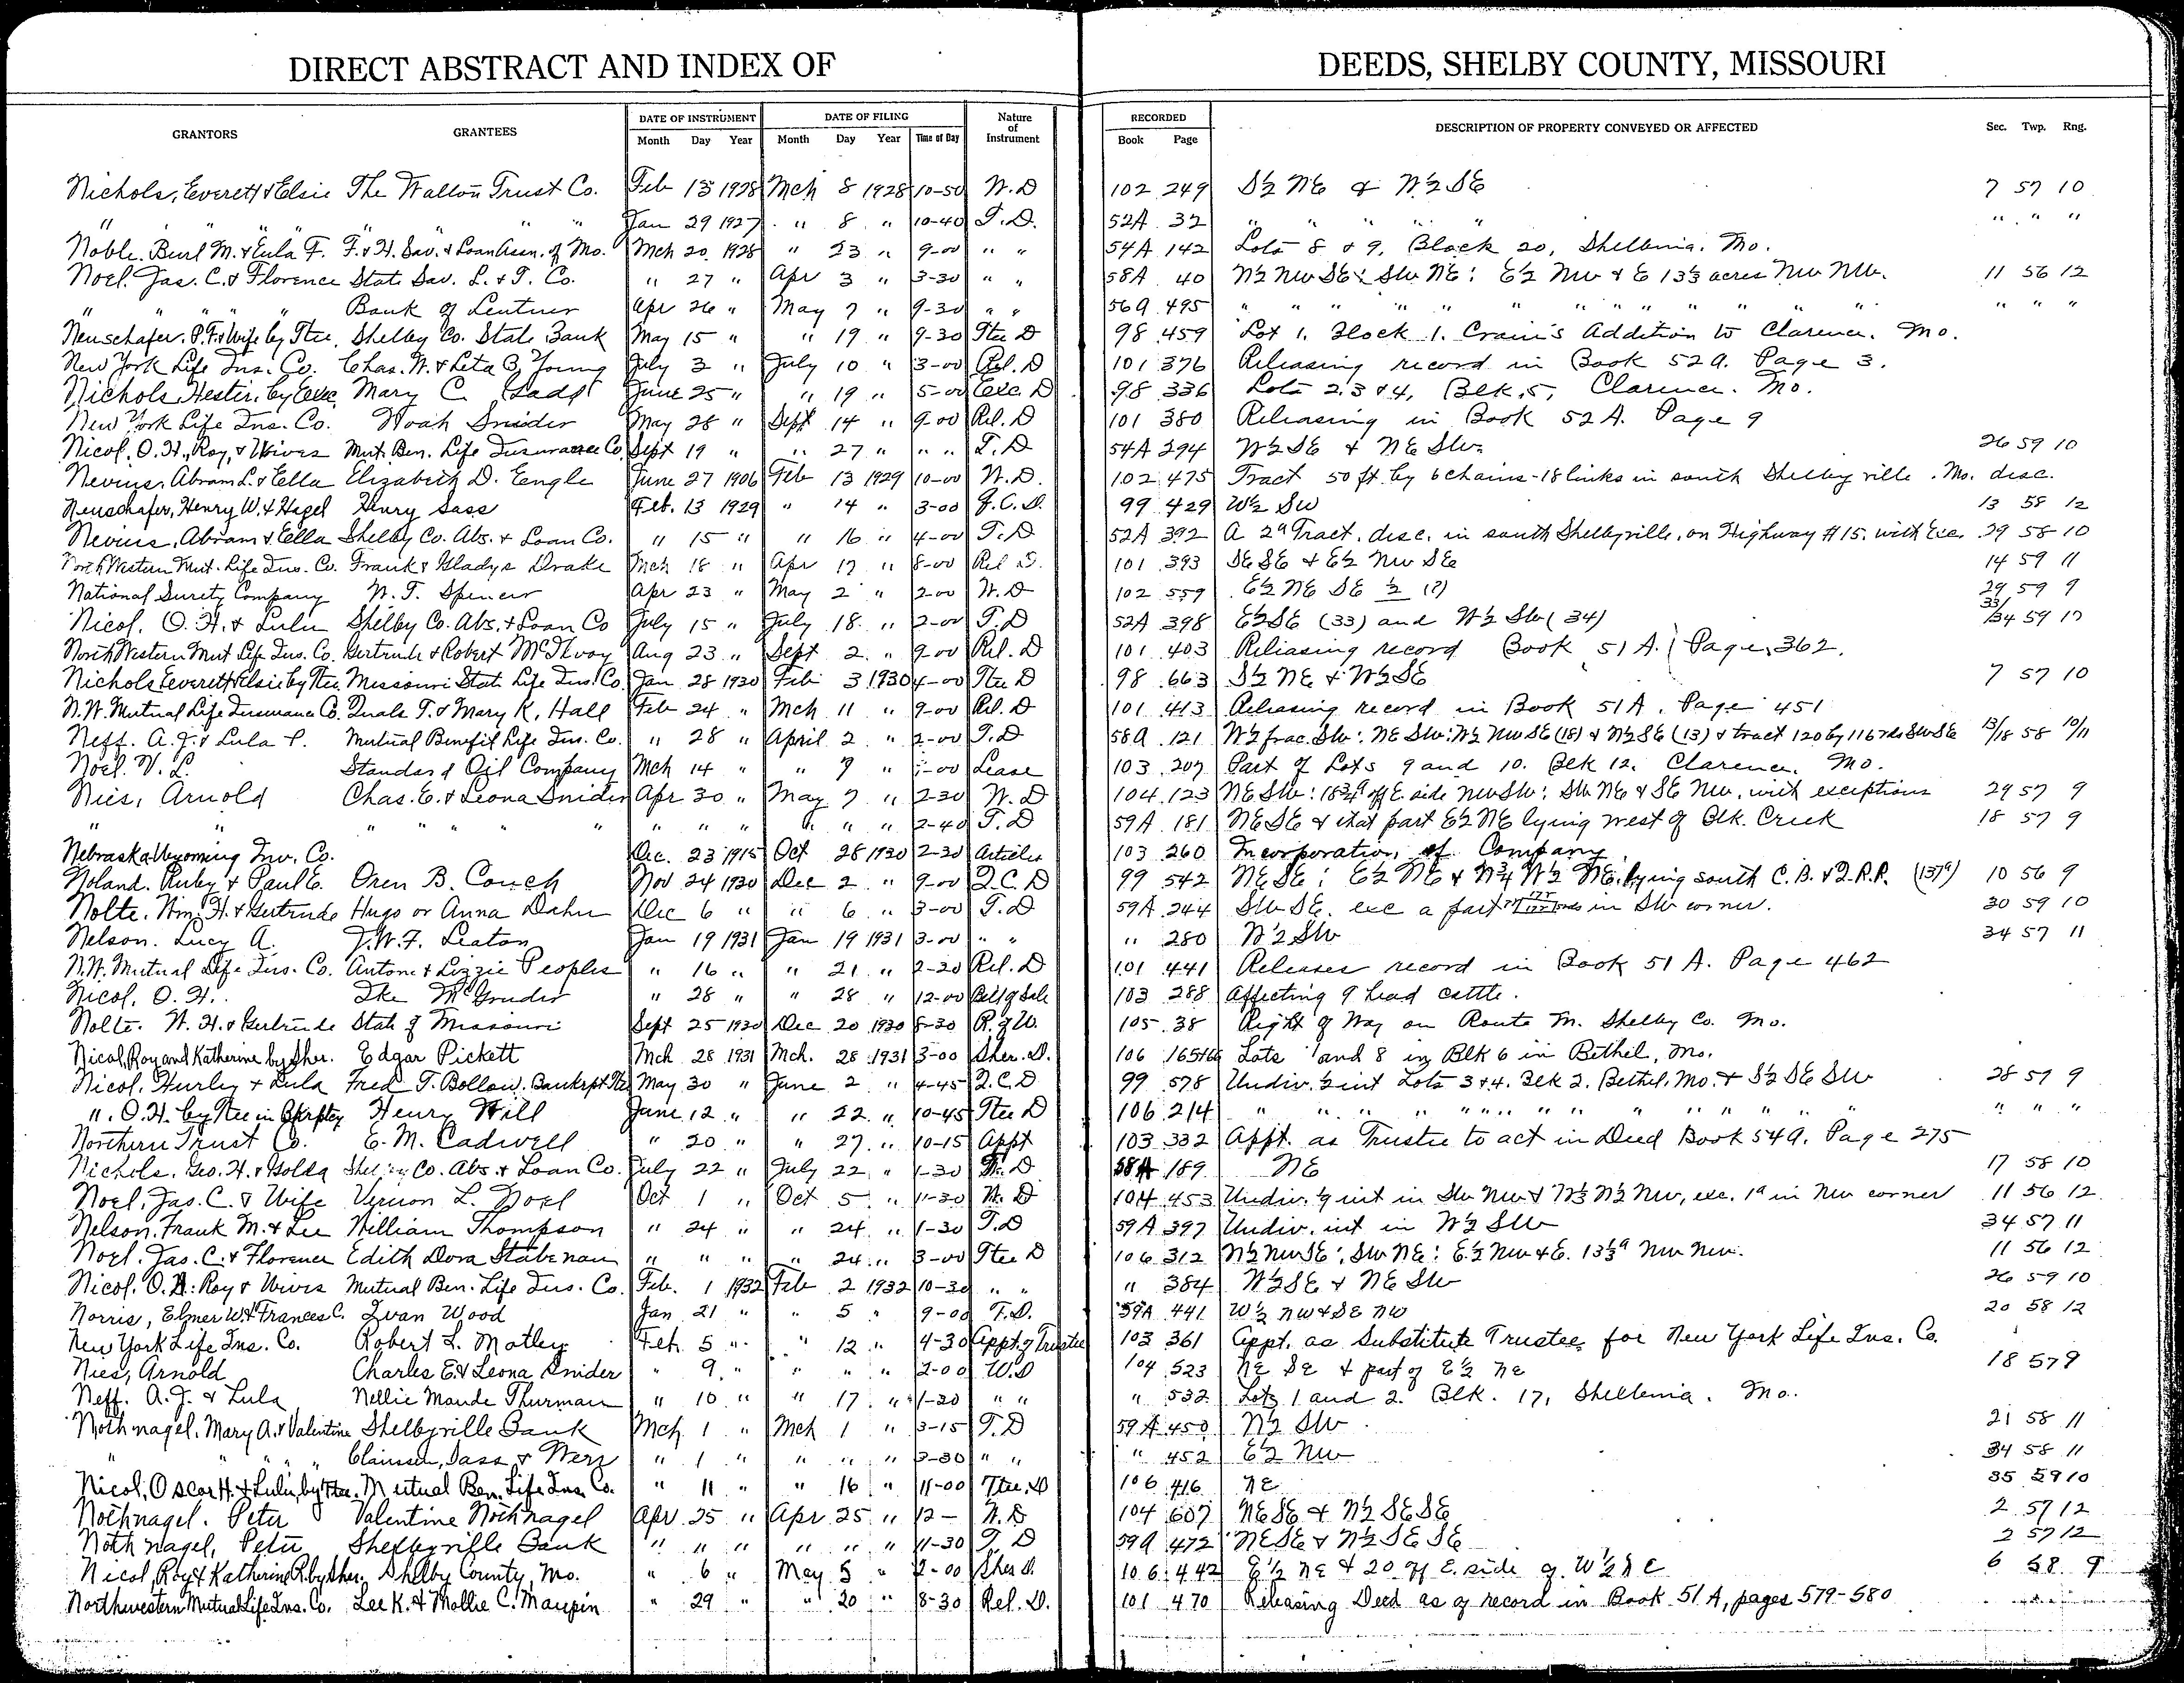 DIRECT ABSTRACT AND INDEX OF DEEDS, SHELBY COUNTY, MISSOURI
GRANTORS GRANTEES DATE OF INSTRUMENT DATE OF FILING Nature of Instrument RECORDED DESCRIPTION OF PROPERTY CONVEYED OR AFFECTED Sec. Twp. Rng.
Month Day Year Month Day Year Time of Day Book Page
Nichols, Everett & Elsie The Walton Trust Co. Feb 13 1928 Mch 8 1928 10-50 W.D 102 249 S½ NE & W½ SE 7 57 10
" " " " " Jan 29 1927 " 8 " 10-40 T.D. 52A 32 " " " " " " " "
Noble. Burl M. & Eula F. F. & H. Sav. & Loan Assn. of Mo. Mch 20 1928 " 23 " 9-00 " " 54A 142 Lots 8 & 9, Block 20, Shelbina. Mo.
Noel. Jas. C. & Florence State Sav. L. & T. Co. " 27 " Apr 3 " 3-30 " " 58A 40 N½ NW SE & SW NE: E½ NW & E 13⅓ acres NW NW. 11 56 12
" " " Bank of Lentner Apr 26 " May 7 " 9-30 " " 56A 495 " " " " " " " " " " " "
Neuschafer. P.F. & Wife by Ttee. Shelby Co. State Bank May 15 " " 19 " 9-30 Ttee D 98 459 Lot 1. Block 1. Crain's Addition to Clarence. Mo.
New York Life Ins. Co. Chas. W. & Leta B. Young July 3 " July 10 " 3-00 Rel. D 101 376 Releasing record in Book 52A. Page 3.
Nichols Hester. by Exec. Mary C. June 25 " " 19 " 5-00 Exc. D 98 336 Lots 2, 3 & 4, Blk. 5, Clarence. Mo.
New York Life Ins. Co. Noah Snider May 28 " Sept 14 " 9-00 Rel. D 101 380 Releasing in Book 52A. Page 9
Nicol. O.H., Roy, & Wives Mut. Ben. Life Insurance Co. Sept 19 " " 27 " " " T.D 54A 294 W½ SE & NE SW. 26 59 10
Nevius, Abram L. & Ella Elizabeth D. Engle June 27 1906 Feb 13 1929 10-00 W.D. 102 475 Tract 50 ft. by 6 chains-18 links in south Shelbyville. Mo. desc.
Neuschafer, Henry W. & Hazel Henry Sass Feb. 13 1929 " 14 " 3-00 Q.C.D. 99 429 W½ SW 13 58 12
Nevius, Abram & Ella Shelby Co. Abs. & Loan Co. " 15 " " 16 " 4-00 T.D 52A 392 A 2ᵃ Tract, desc. in south Shelbyville, on Highway #15. with Exc. 29 58 10
North Western Mut. Life Ins. Co. Frank & Gladys Drake Mch 18 " Apr 17 " 8-00 Rel D. 101 393 SE SE & E½ NW SE 14 59 11
National Surety Company W. T. Spencer Apr 23 " May 2 " 2-00 W.D 102 559 E½ NE SE ½ (?) 29 59 9
Nicol. O.H. & Lulu Shelby Co. Abs. & Loan Co July 15 " July 18 " 2-00 T.D 52A 398 E½ SE (33) and W½ SW (34) 33/34 59 10
North Western Mut Life Ins. Co. Gertrude & Robert McIlvoy Aug 23 " Sept 2 " 9-00 Rel. D 101 403 Releasing record Book 51A. Page 362.
Nichols, Everett & Elsie by Ttee. Missouri State Life Ins. Co. Jan 28 1930 Feb 3 1930 4-00 Ttee D 98 663 S½ NE & W½ SE 7 57 10
N.W. Mutual Life Insurance Co. Quals T. & Mary K. Hall Feb 24 " Mch 11 " 9-00 Rel. D 101 413 Releasing record in Book 51A. Page 451
Neff. A.J. & Lula P. Mutual Benefit Life Ins. Co. " 28 " April 2 " 2-00 T.D 58A 121 W½ frac. SW: NE SW: W½ NW SE (18) & N½ SE (13) & tract 120 by 116 rds SW SE 13/18 58 10/11
Noel. V. L. Standard Oil Company Mch 14 " " 9 " 1-00 Lease 103 207 Part of Lots 9 and 10. Blk 12. Clarence. Mo.
Nies, Arnold Chas. E. & Leona Snider Apr 30 " May 7 " 2-30 W.D 104 123 NE SW: 18¾ᵃ off E. side NW SW: SW NE & SE NW, with exceptions 29 57 9
" " " " " " " " " " " " 2-40 T.D 59A 181 NE SE & that part E½ NE lying west of Blk. Creek 18 57 9
Nebraska-Wyoming Inv. Co. Dec. 23 1915 Oct 28 1930 2-30 Articles 103 260 Incorporation of Company
Noland. Ruby & Paul E. Oren B. Couch Nov 24 1930 Dec 2 " 9-00 Q.C.D 99 542 NE SE: E½ NE & W¾ W½ NE. lying south C.B. & Q.R.R. (137ᵃ) 10 56 9
Nolte. Wm. H. & Gertrude Hugo or Anna Dahn Dec 6 " " 6 " 3-00 T.D 59A 244 SW SE. exc a part in SW corner. 30 59 10
Nelson. Lucy A. J.W.F. Leaton Jan 19 1931 Jan 19 1931 3-00 " " " 280 W½ SW 34 57 11
N.W. Mutual Life Ins. Co. Antone & Lizzie Peoples " 16 " " 21 " 2-20 Rel. D 101 441 Releases record in Book 51A. Page 462
Nicol. O.H. Ike McGruder " 28 " " 28 " 12-00 Bill of Sale 103 288 Affecting 9 head cattle.
Nolte. W.H. & Gertrude State of Missouri Sept 25 1930 Dec 20 1930 8-30 R. of W. 105 38 Right of Way on Route M. Shelby Co. Mo.
Nicol, Roy and Katherine by Sher. Edgar Pickett Mch 28 1931 Mch. 28 1931 3-00 Sher. D. 106 165+66 Lots 1 and 8 in Blk 6 in Bethel, Mo.
Nicol, Hurley & Lula Fred T. Bollow. Bankrpt Ttee May 30 " June 2 " 4-45 Q.C.D 99 578 Undiv. ½ int Lots 3 & 4. Blk 2. Bethel, Mo. & S½ SE SW 28 57 9
" . O.H. by Ttee in Bkrptcy Henry Hill June 12 " " 22 " 10-45 Ttee D 106 214 " " " " " " " " " " " " " " "
Northern Trust Co. E. M. Cadwell " 20 " " 27 " 10-15 Appt 103 332 Appt. as Trustee to act in Deed Book 54A. Page 275
Nichols. Geo. H. & Golda Shelby Co. Abs. & Loan Co. July 22 " July 22 " 1-30 D 58A 189 NE 17 58 10
Noel, Jas. C. & Wife Vernon L. Noel Oct 1 " Oct 5 " 11-30 W.D 104 453 Undiv. 1/9 int in SW NW & N½ NW, exc. 1ᵃ in NW corner 11 56 12
Nelson, Frank M. & Lee William Thompson " 24 " " 24 " 1-30 T.D 59A 397 Undiv. int in W½ SW 34 57 11
Noel. Jas. C. & Florence Edith Dora Stabenau " " " " 24 " 3-00 Ttee D 106 312 N½ NW SE: SW NE: E½ NW & E. 13⅓ᵃ NW NW. 11 56 12
Nicol. O.H: Roy & Wives Mutual Ben. Life Ins. Co. Feb. 1 1932 Feb 2 1932 10-30 " " " 384 W½ SE & NE SW 26 59 10
Norris, Elmer W. & Frances C. Ivan Wood Jan 21 " " 5 " 9-00 T.D. 59A 441 W½ NW & SE NW 20 58 12
New York Life Ins. Co. Robert L. Motley Feb. 5 " " 12 " 4-30 Appt. of Trustee 103 361 Appt. as Substitute Trustee for New York Life Ins. Co.
Nies, Arnold Charles E. & Leona Snider " 9 " " " " 2-00 W.D 104 523 NE SE & part of E½ NE 18 57 9
Neff. A.J. & Lula Nellie Maude Thurman " 10 " " 17 " 1-30 " " " 532 Lots 1 and 2. Blk. 17, Shelbina. Mo.
Nothnagel. Mary A. & Valentine Shelbyville Bank Mch 1 " Mch 1 " 3-15 T.D 59A 450 N½ SW 21 58 11
" " " " Claussen, Sass & Werr " 1 " " " " 3-30 " " " 452 E½ NW 34 58 11
Nicol, Oscar H. & Lulu, by Ttee. Mutual Ben. Life Ins. Co. " 11 " " 16 " 11-00 Ttee. D 106 416 NE 35 59 10
Nothnagel. Peter Valentine Nothnagel Apr 25 " Apr 25 " 12- W.D 104 607 NE SE & N½ SE SE 2 57 12
Nothnagel, Peter Shelbyville Bank " " " " " " 11-30 T.D 59A 472 NE SE & N½ SE SE 2 57 12
Nicol, Roy & Katherine R. by Sher. Shelby County, Mo. " 6 " May 5 " 2-00 Sher D. 106 442 E½ NE & 20 off E. side of W½ NE 6 58 9
Northwestern Mutual Life Ins. Co. Lee K. & Mollie C. Maupin " 29 " " 20 " 8-30 Rel. D. 101 470 Releasing Deed as of record in Book 51A, pages 579-580